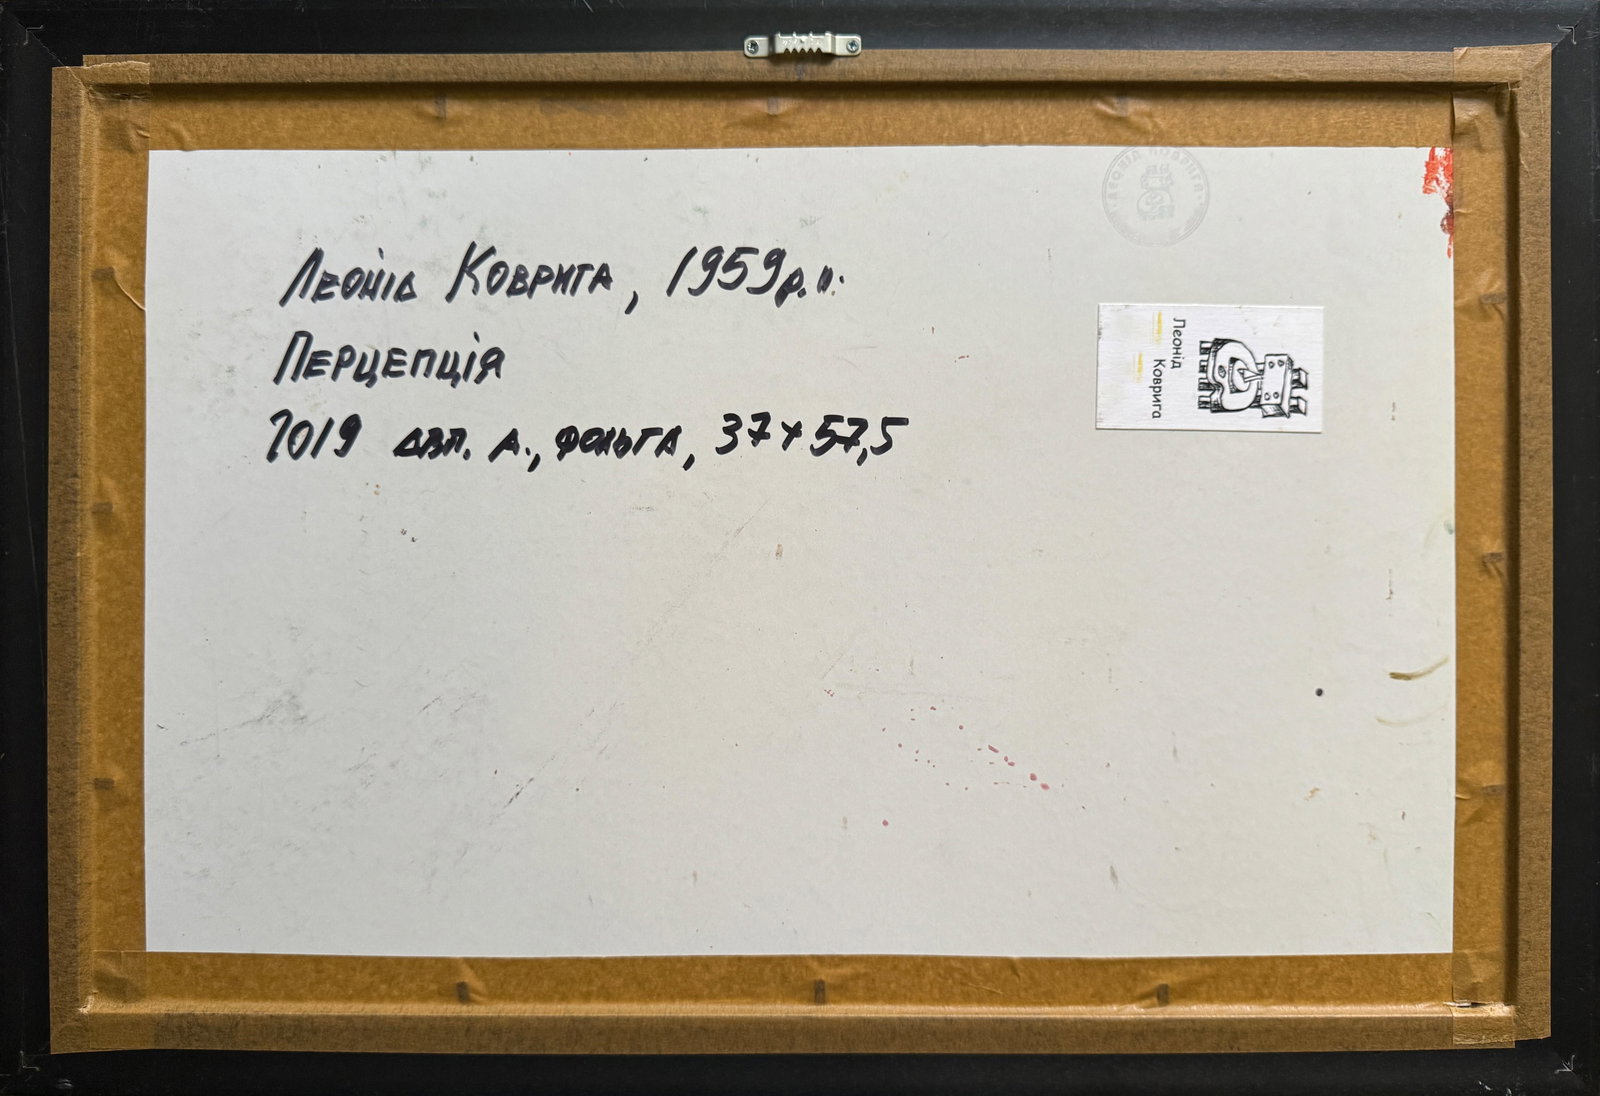 Леонід Коврига, 1959 р.н.
Перцепція
2019 двп. А., фольга, 37x57,5
ЛЕОНІД КОВРИГА
Леонід
Коврига